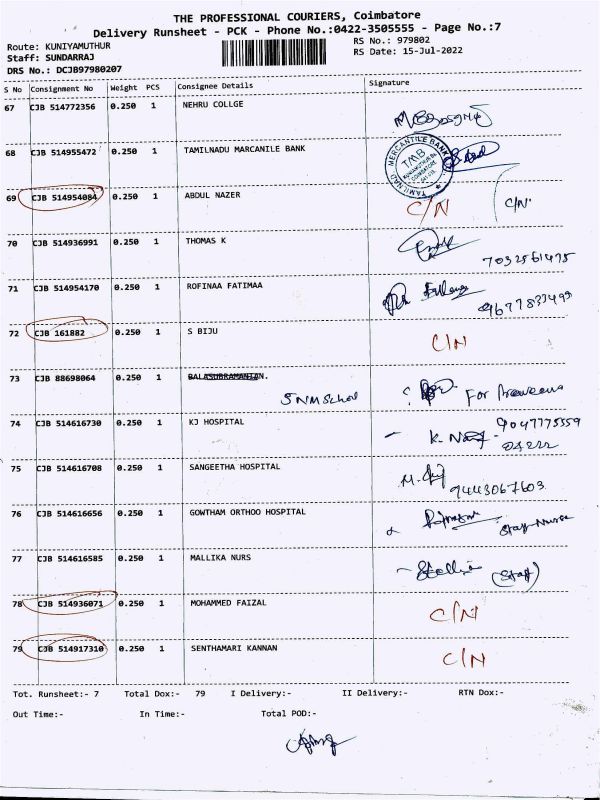 THE PROFESSIONAL COURIERS, Coimbatore
Delivery Runsheet - PCK - Phone No.:0422-3505555 - Page No.:7
Route: KUNIYAMUTHUR RS No.: 979802
Staff: SUNDARRAJ RS Date: 15-Jul-2022
DRS No.: DCJB97980207
S No Consignment No Weight PCS Consignee Details Signature
67 CJB 514772356 0.250 1 NEHRU COLLGE
68 CJB 514955472 0.250 1 TAMILNADU MARCANILE BANK
TAMILNAD MERCANTILE BANK
TMB
69 CJB 514954084 0.250 1 ABDUL NAZER C/N C/N
70 CJB 514936991 0.250 1 THOMAS K
7032561475
71 CJB 514954170 0.250 1 ROFINAA FATIMAA
9677833499
72 CJB 161882 0.250 1 S BIJU C/N
73 CJB 88698064 0.250 1 BALASUBRAMANIAN.
SNM School For Praveena
74 CJB 514616730 0.250 1 KJ HOSPITAL 9047775559
75 CJB 514616708 0.250 1 SANGEETHA HOSPITAL
9443067603
76 CJB 514616656 0.250 1 GOWTHAM ORTHOO HOSPITAL
Staff Nurse
77 CJB 514616585 0.250 1 MALLIKA NURS
(Staff)
78 CJB 514936071 0.250 1 MOHAMMED FAIZAL C/N
79 CJB 514917310 0.250 1 SENTHAMARI KANNAN C/N
Tot. Runsheet:- 7 Total Dox:- 79 I Delivery:- II Delivery:- RTN Dox:-
Out Time:- In Time:- Total POD:-